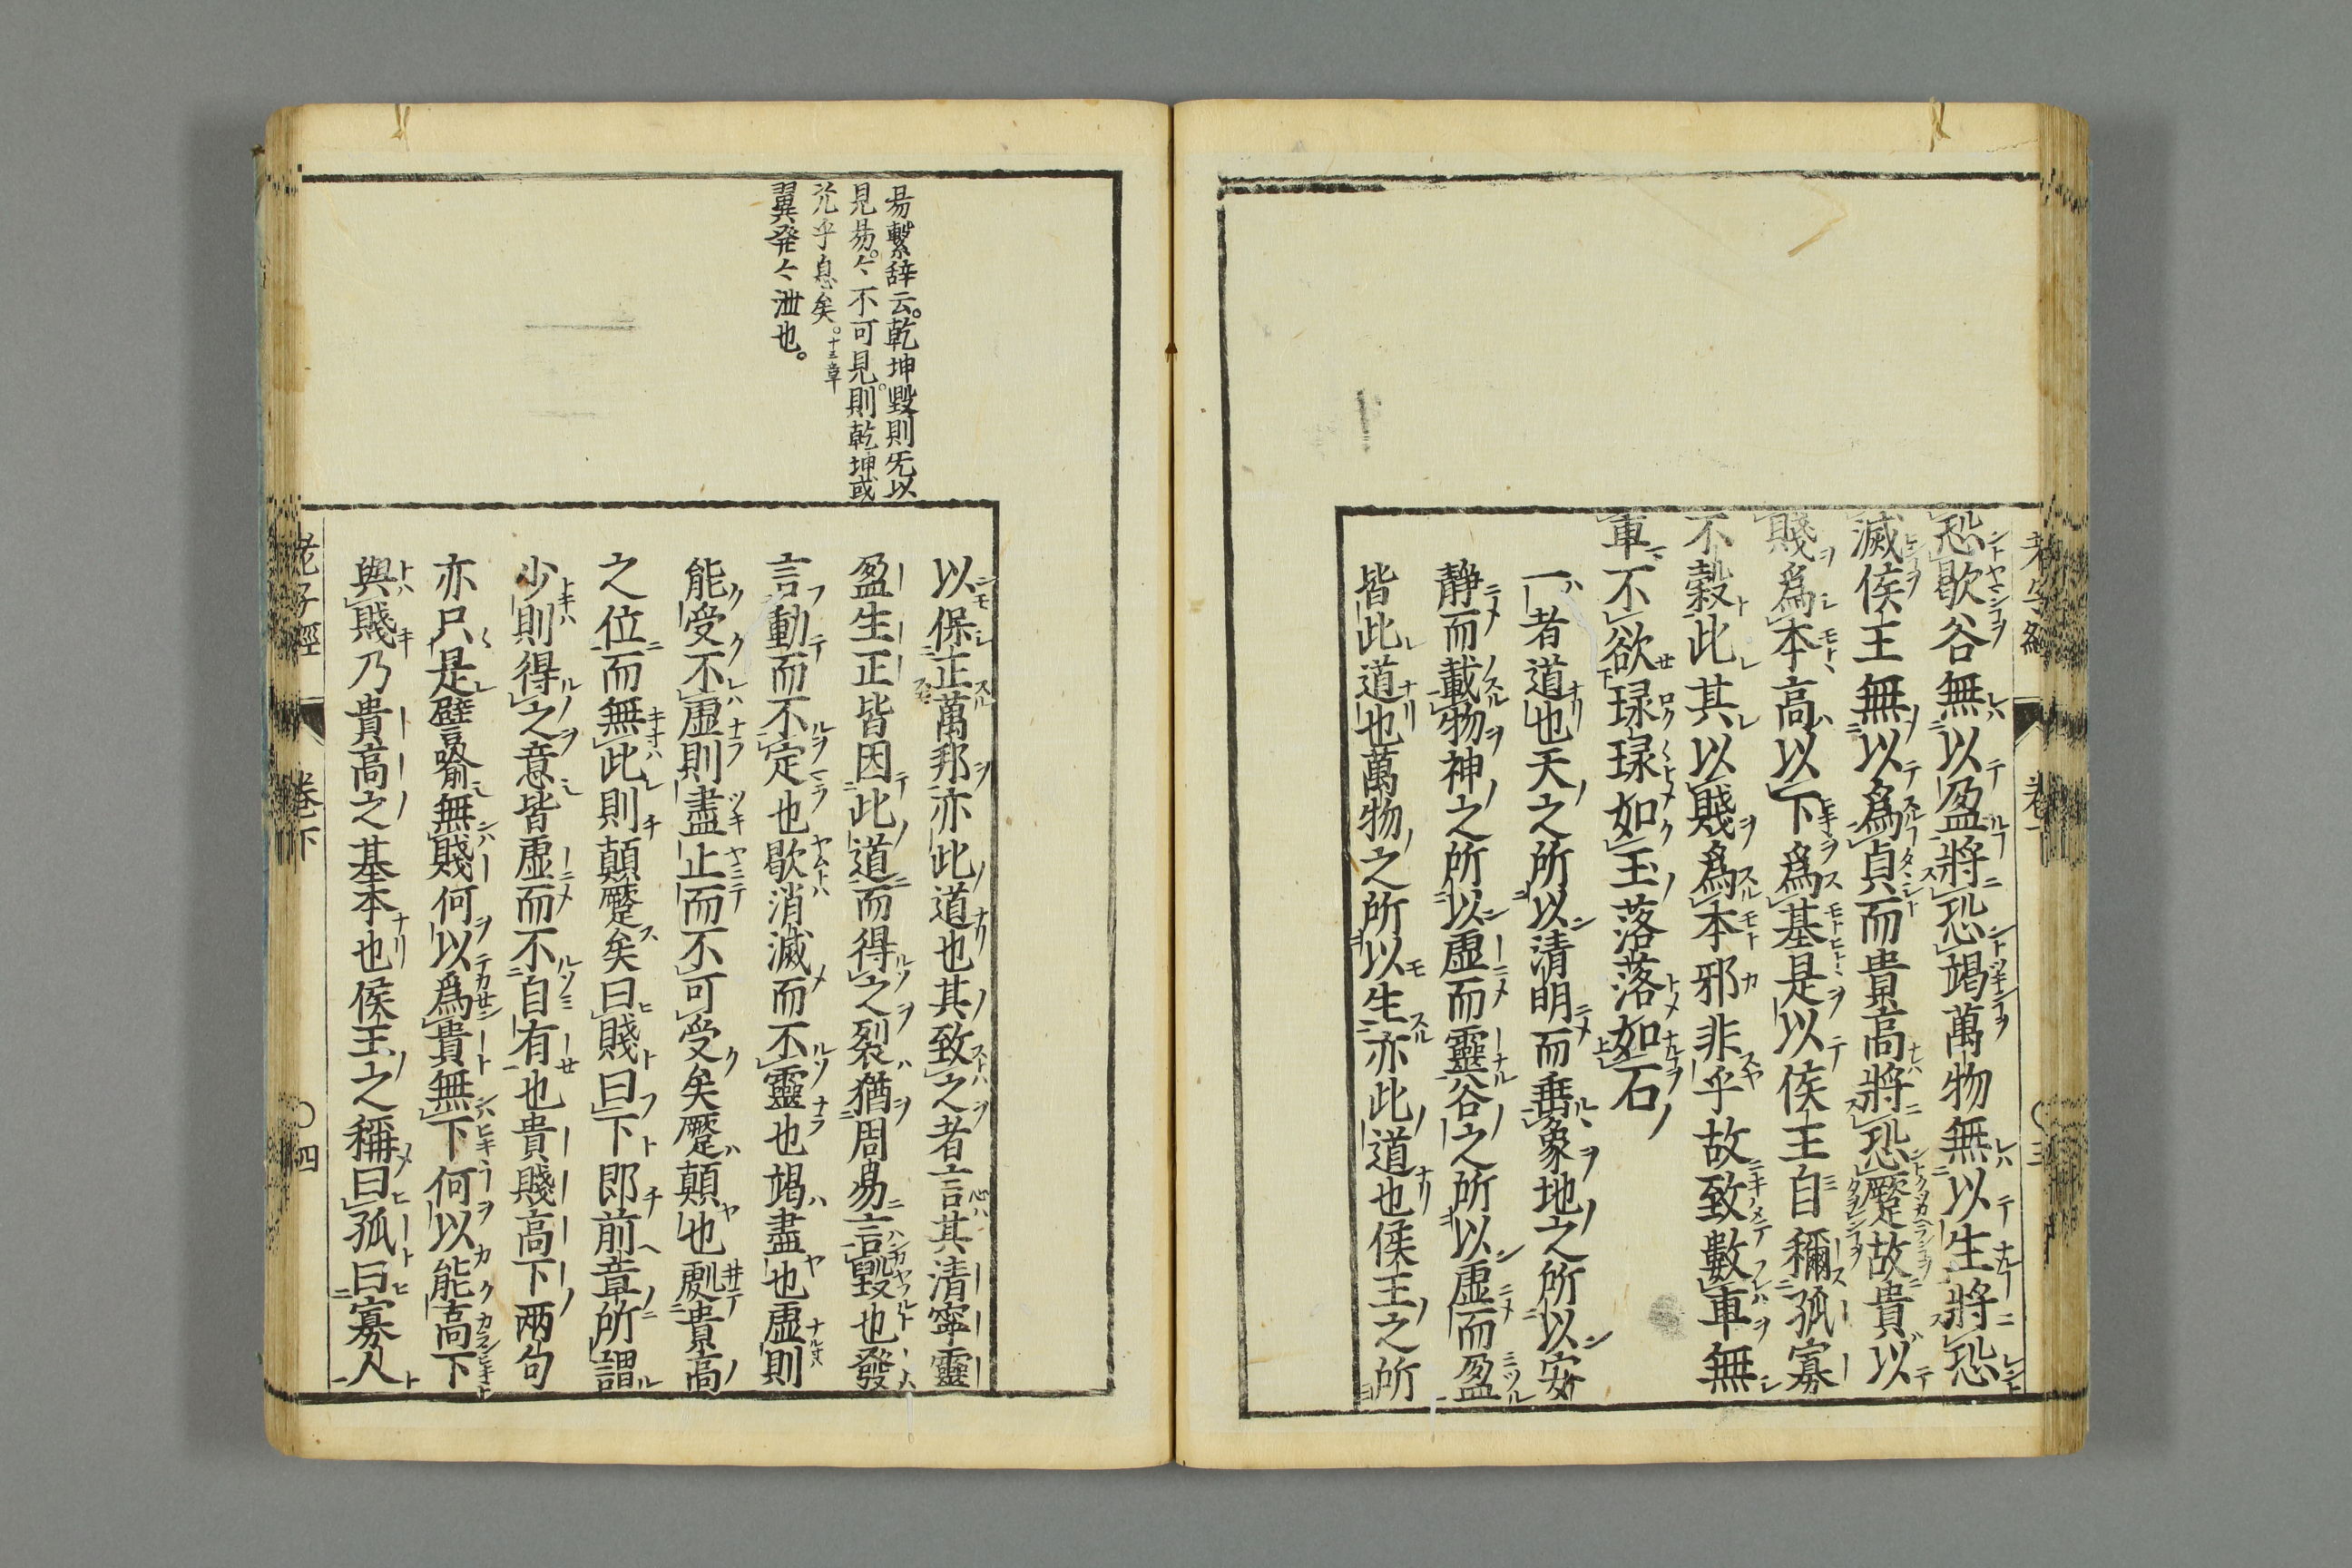 恐歇谷無以盈將恐竭萬物無以生將恐
滅侯王無以爲貞而貴高將恐蹷故貴以
賤爲本高以下爲基是以侯王自稱孤寡
不穀此其以賤爲本邪非乎故致數車無
車不欲琭琭如玉落落如石
一者道也天之所以清明而垂象地之所以安
静而載物神之所以虛而靈谷之所以虛而盈
皆此道也萬物之所以生亦此道也侯王之所
易繫辞云。乾坤毀則旡以
見易。々不可見。則乾坤或
幾乎息矣。十二章
翼発々泄也。
以保正萬邦亦此道也其致之者言其清寧靈
盈生正皆因此道而得之裂猶周易言毀也發
言動而不定也歇消滅而不靈也竭盡也虛則
能受不虛則盡止而不可受矣蹷顛也處貴高
之位而無此則顛蹷矣曰賤曰下即前章所謂
少則得之意皆虛而不自有也貴賤高下兩句
亦只是譬喻無賤何以爲貴無下何以能高下
與賤乃貴高之基本也侯王之稱曰孤曰寡人
老子經 卷下 〇四